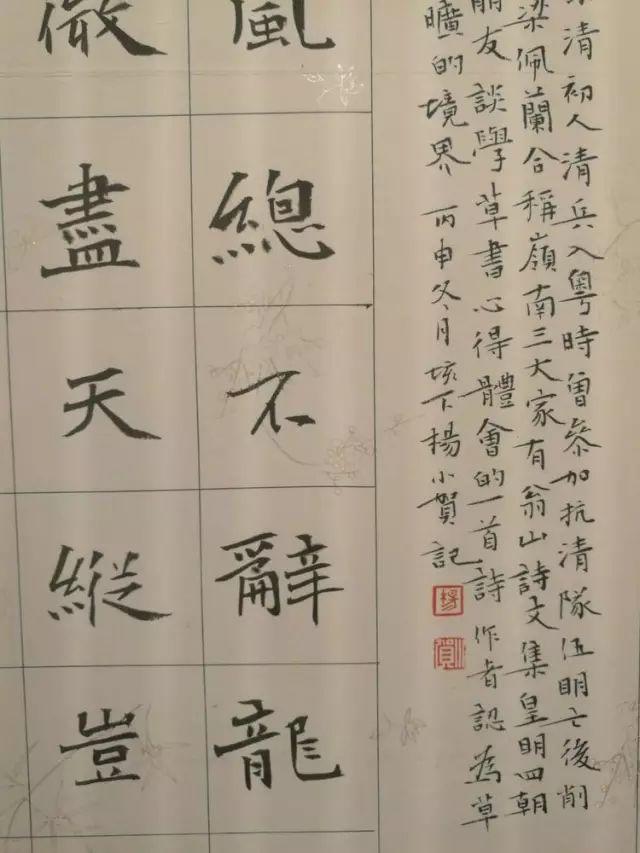 清初人清兵入粵時曾參加抗清隊伍明亡後削
梁佩蘭合稱嶺南三大家有翁山詩文集皇明四朝
朋友談學草書心得體會的一首詩作者認為草
曠的境界 丙申冬月垓下楊小賀記
風總不辭龍
微盡天縱豈